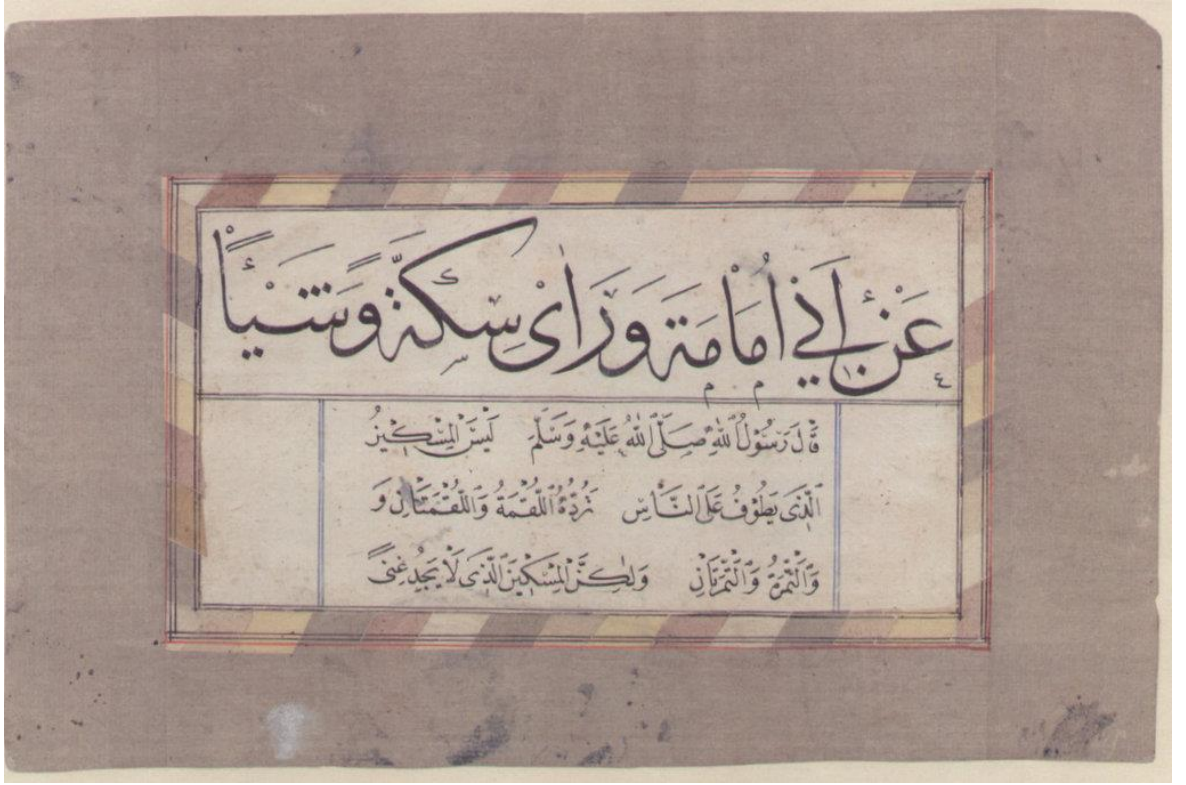 عَنْ اَبِي اُمَامَة وَرَاٰى سِكَّةً وَشَيْئاً
قَالَ رَسُوْلُ اللّٰهِ صَلَّى اللّٰهُ عَلَيْهِ وَسَلَّمَ لَيْسَ الْمِسْكِيْنُ
الَّذِى يَطُوْفُ عَلَى النَّاسِ تَرُدُّهُ اللُّقْمَةُ وَاللُّقْمَتَانِ وَ
وَالتَّمْرَةُ وَالتَّمْرَتَانِ وَلٰكِنَّ الْمِسْكِيْنَ الَّذِى لَا يَجِدُ غِنًى